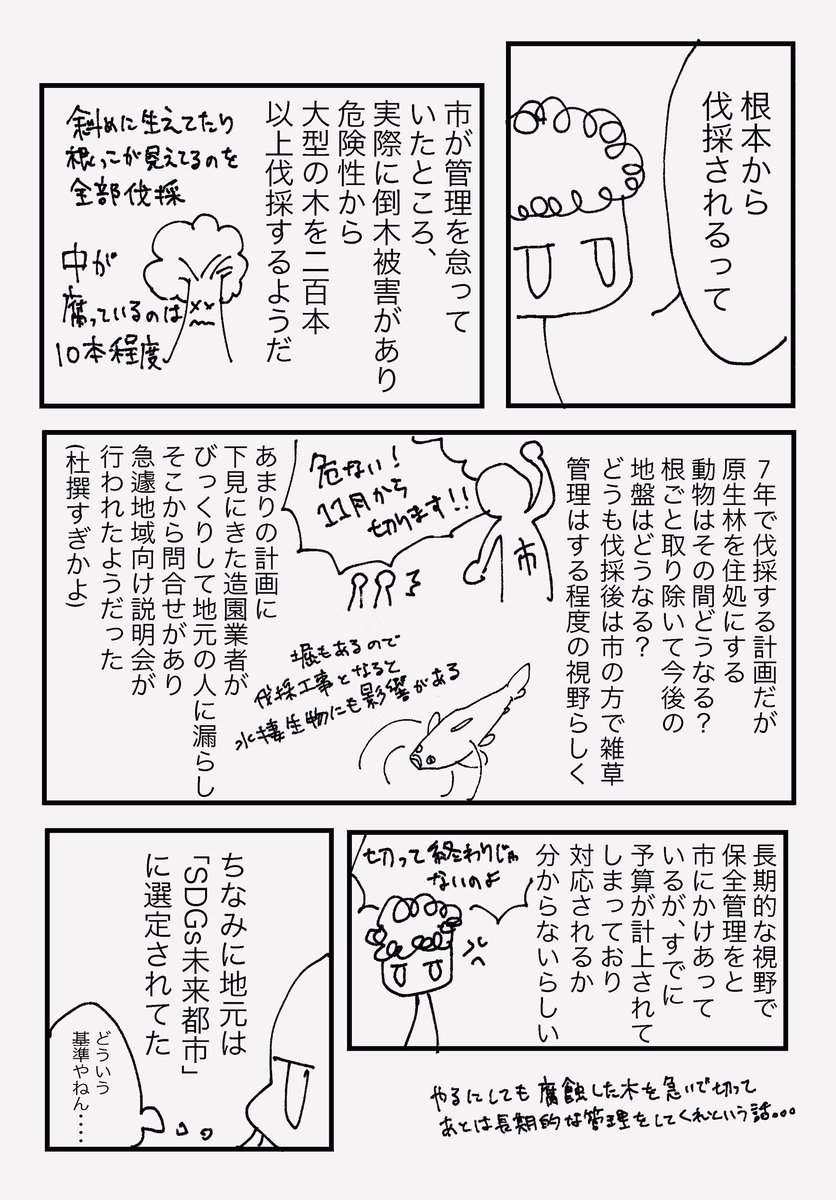 根本から
伐採されるって
市が管理を怠って
いたところ、
実際に倒木被害があり
危険性から
大型の木を二百本
以上伐採するようだ
斜めに生えてたり
根っこが見えてるのを
全部伐採
中が
腐っているのは
10本程度
7年で伐採する計画だが
原生林を住処にする
動物はその間どうなる?
根ごと取り除いて今後の
地盤はどうなる?
どうも伐採後は市の方で雑草
管理はする程度の視野らしく
市
危ない!
11月から
切ります!!
堀もあるので
伐採工事となると
水棲生物にも影響がある
あまりの計画に
下見にきた造園業者が
びっくりして地元の人に漏らし
そこから問合せがあり
急遽地域向け説明会が
行われたようだった
(杜撰すぎかよ)
長期的な視野で
保全管理をと
市にかけあって
いるが、すでに
予算が計上されて
しまっており
対応されるか
分からないらしい
切って終わりじゃ
ないのよ
やるにしても腐蝕した木を急いで切って
あとは長期的な管理をしてくれという話...
ちなみに地元は
「SDGs未来都市」
に選定されてた
どういう
基準やねん……